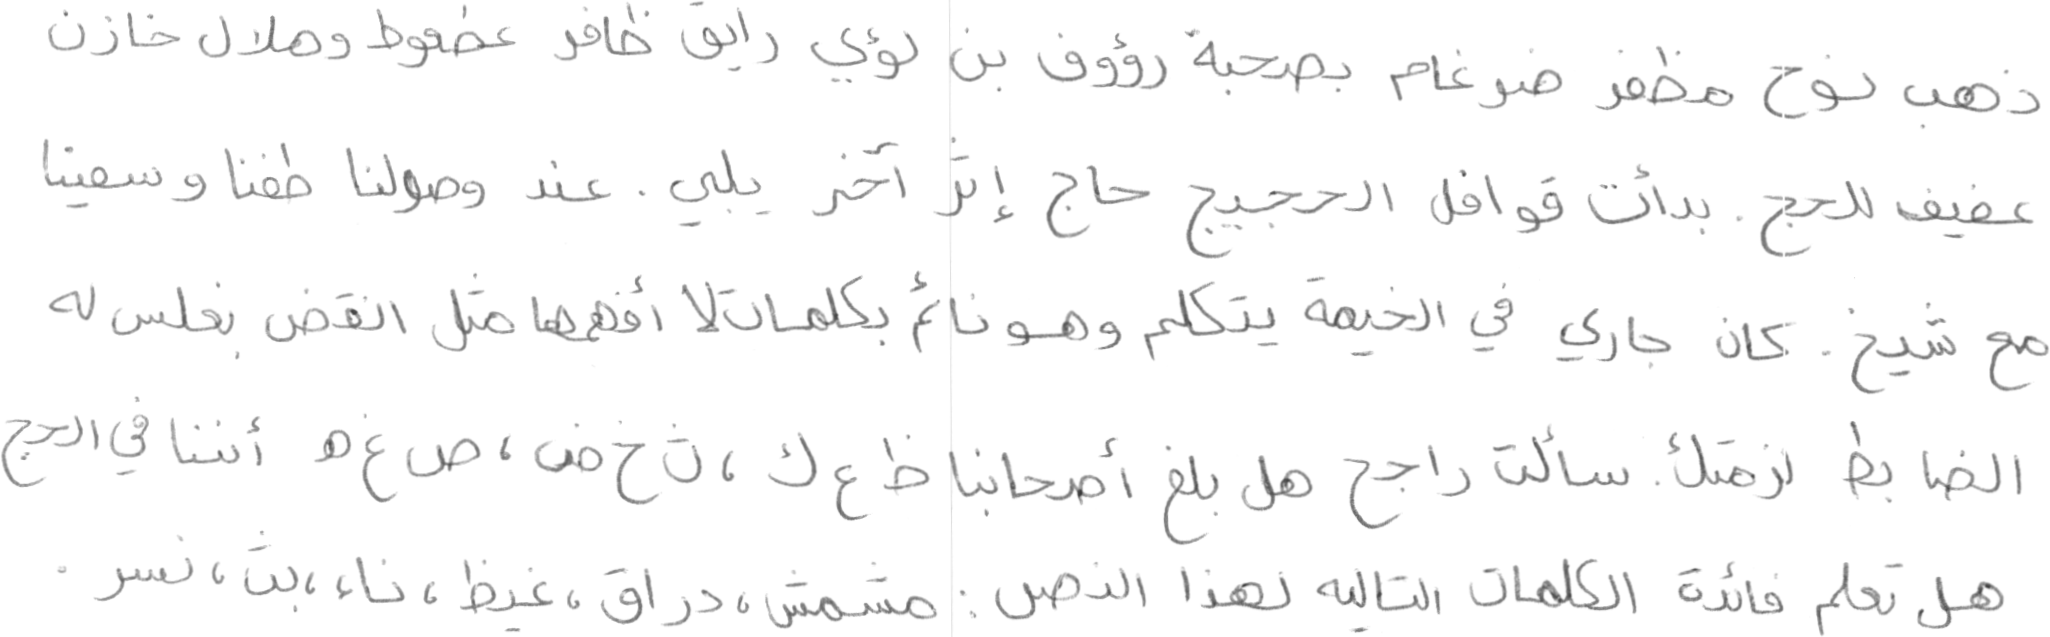 ذهب نوح مظفر ضرغام بصحبة رؤوف بن لؤي رايق ظافر عطعوط وهلال خازن
عفيف للحج. بدأت قوافل الحجيج حاج إثر آخر يلبي. عند وصولنا طفنا وسعينا
مع شيخ. كان جاري في الخيمة يتكلم وهو نائم بكلمات لا أفهمها مثل انقض بغلس له
الضابط لزمتك. سألت راجح هل بلغ أصحابنا ظ ع ك، ث خ ض، ص غ ه أننا في الحج
هل تعلم فائدة الكلمات التاليه لهذا النص: مشمش، دراق، غيظ، ناء، بث، نسر.